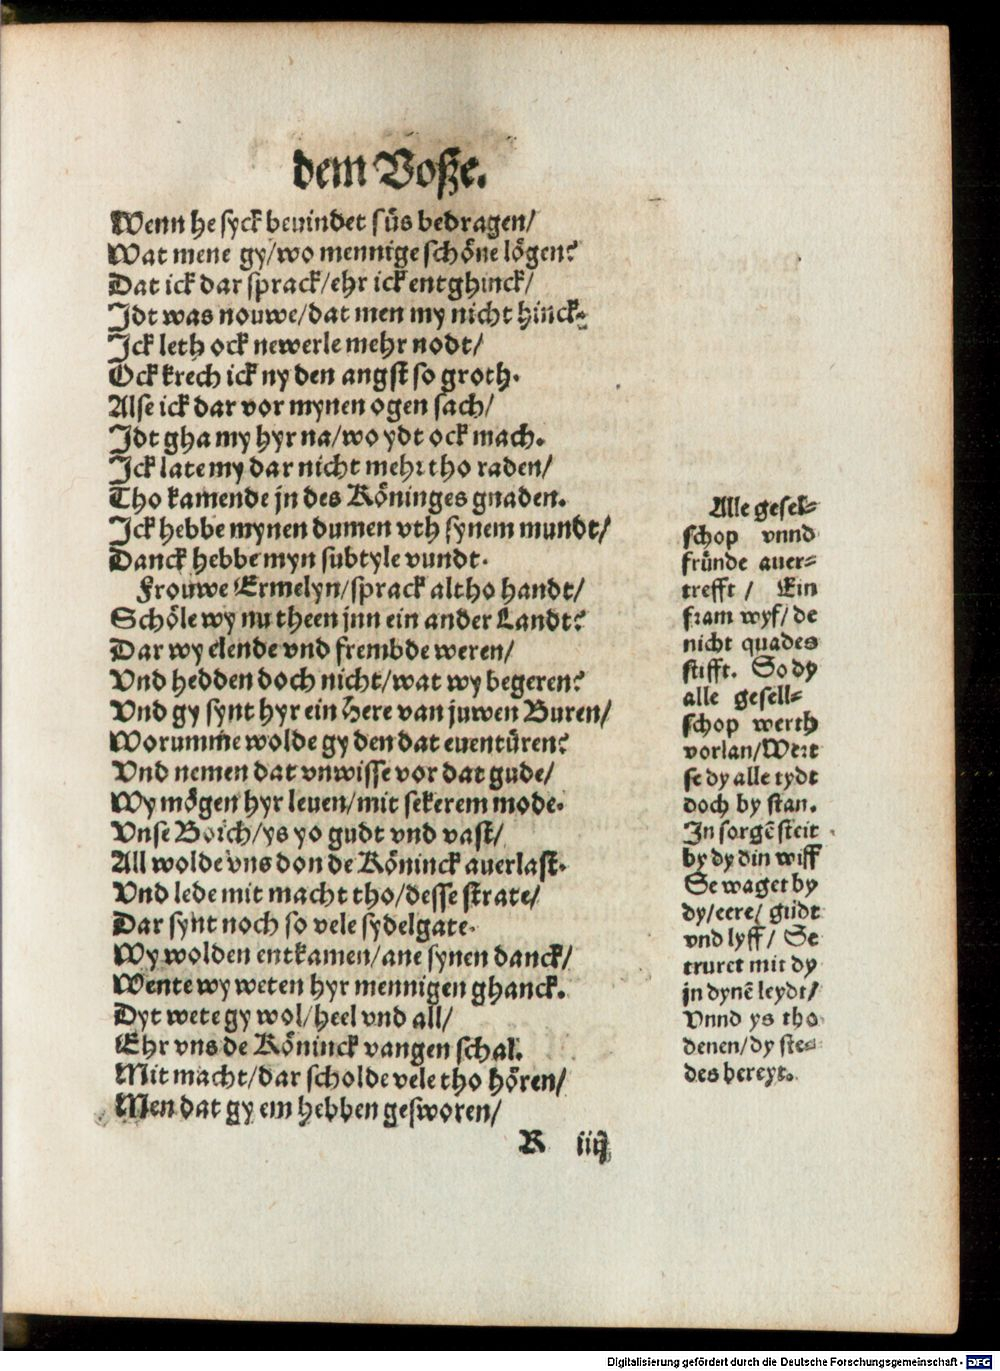 dem Voßze.
Wenn he syck beuindet süs bedragen/
Wat mene gy/wo mennige schöne lögen?
Dat ick dar sprack/ehr ick entghinck/
Jdt was nouwe/dat men my nicht hinck.
Jck leth ock newerle mehr nodt/
Ock krech ick ny den angst so groth.
Alse ick dar vor mynen ogen sach/
Jdt gha my hyr na/wo ydt ock mach.
Jck late my dar nicht mehr tho raden/
Tho kamende jn des Köninges gnaden.
Jck hebbe mynen dumen vth synem mundt/
Danck hebbe myn subtyle vundt.
Frouwe Ermelyn/sprack altho handt/
Schöle wy nu theen jnn ein ander Landt?
Dar wy elende vnd frembde weren/
Vnd hedden doch nicht/wat wy begeren?
Vnd gy synt hyr ein Here van juwen Buren/
Worumme wolde gy den dat euentüren?
Vnd nemen dat vnwisse vor dat gude/
Wy mögen hyr leuen/mit sekerem mode.
Vnse Borch/ys yo gudt vnd vast/
All wolde vns don de Köninck auerlast.
Vnd lede mit macht tho/desse strate/
Dar synt noch so vele sydelgate.
Wy wolden entkamen/ane synen danck/
Wente wy weten hyr mennigen ghanck.
Dyt wete gy wol/heel vnd all/
Ehr vns de Köninck vangen schal.
Mit macht/dar scholde vele tho hören/
Men dat gy em hebben gesworen/
R iiij
Alle gesel-
schop vnnd
fründe auer-
trefft / Ein
fram wyf/ de
nicht quades
stifft. So dy
alle gesell-
schop werth
vorlan/Wert
se dy alle tydt
doch by stan.
Jn sorgē steit
by dy din wiff
Se waget by
dy/eere/ gudt
vnd lyff/ Se
truret mit dy
jn dynē leydt/
Vnnd ys tho
denen/dy ste-
des bereyt.
Digitalisierung gefördert durch die Deutsche Forschungsgemeinschaft - DFG